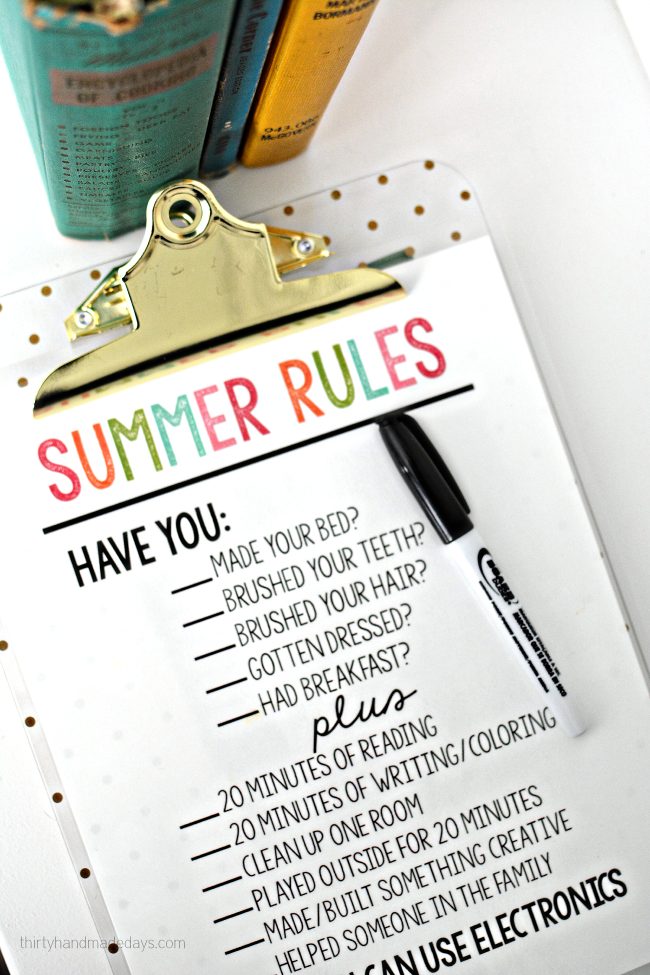 ENCYCLOPEDIA
OF COOKING
FOREIGN FOODS
GAME
MEATS
PASTRY
BORMANN
943.086
McGOVERN
SUMMER RULES
HAVE YOU:
MADE YOUR BED?
BRUSHED YOUR TEETH?
BRUSHED YOUR HAIR?
GOTTEN DRESSED?
HAD BREAKFAST?
plus
20 MINUTES OF READING
20 MINUTES OF WRITING/COLORING
CLEAN UP ONE ROOM
PLAYED OUTSIDE FOR 20 MINUTES
MADE/BUILT SOMETHING CREATIVE
HELPED SOMEONE IN THE FAMILY
CAN USE ELECTRONICS
thirtyhandmadedays.com